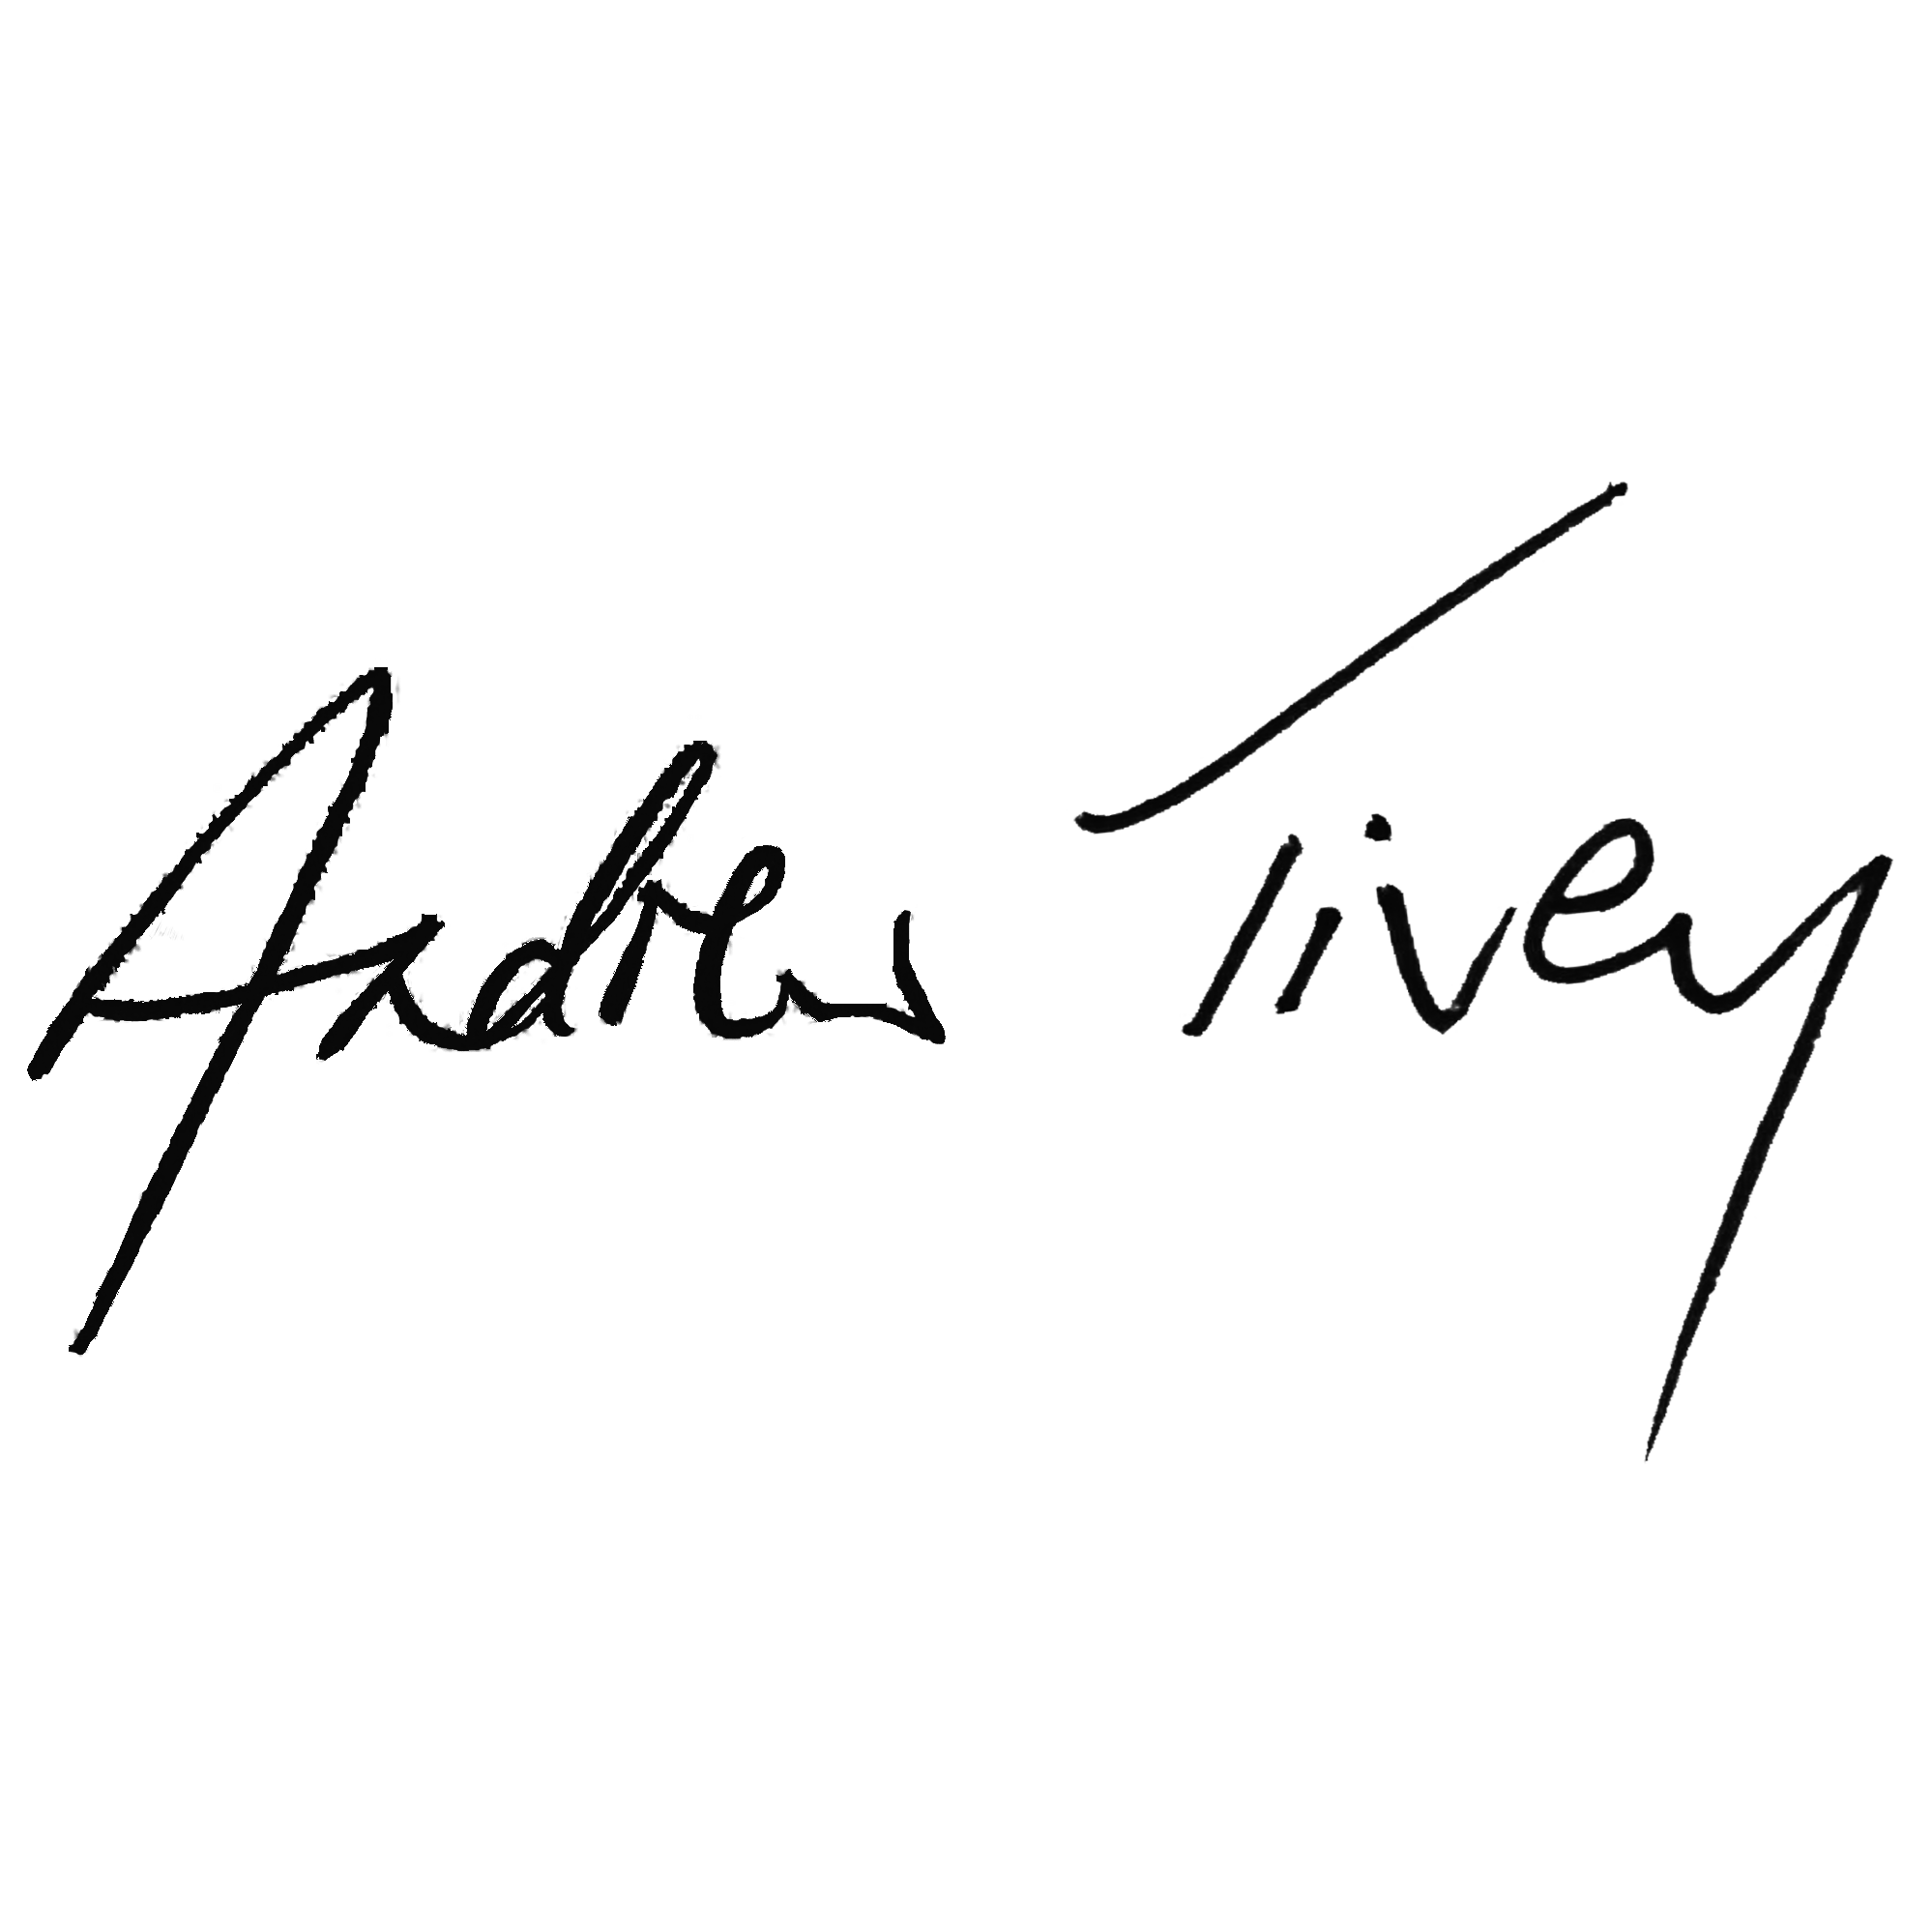 Andrew Tivey